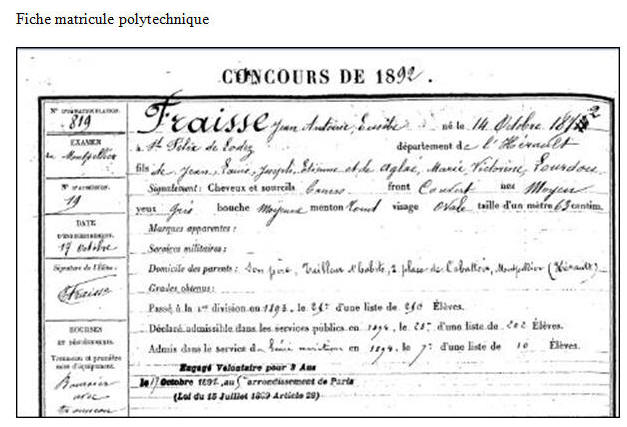 Fiche matricule polytechnique
CONCOURS DE 1892.
N° D'IMMATRICULATION.
819
EXAMEN
de Montpellier
N° D'ADMISSION.
19
DATE
D'ENREGISTREMENT.
17 Octobre
Signature de l'Élève:
Fraisse
BOURSES
ET DÉGRÈVEMENTS.
Trousseau et première
mise d'équipement.
Boursier
avec
trousseau
Fraisse Jean Antoine Eusèbe né le 14 Octobre 1872
à St Félix de Lodez département de l'Hérault
fils de Jean, Louis, Joseph, Etienne et de Aglaé, Marie Victorine, Lourdou
Signalement: Cheveux et sourcils front Couvert nez Moyen
yeux Gris bouche Moyenne menton Rond visage Ovale taille d'un mètre 63 centim.
Marques apparentes:
Services militaires:
Domicile des parents: Son père, tailleur d'habits, 2 place de Montpellier (Hérault)
Grades obtenus:
Passé à la 1re division en 1893. le d'une liste de 240 Élèves.
Déclaré admissible dans les services publics en 1894, le d'une liste de 202 Élèves.
Admis dans le service du Génie maritime en 1894, le 7e d'une liste de 10 Élèves.
Engagé Volontaire pour 3 Ans
le 17 Octobre 1892, au 5e arrondissement de Paris
(Loi du 15 Juillet 1889 Article 28)